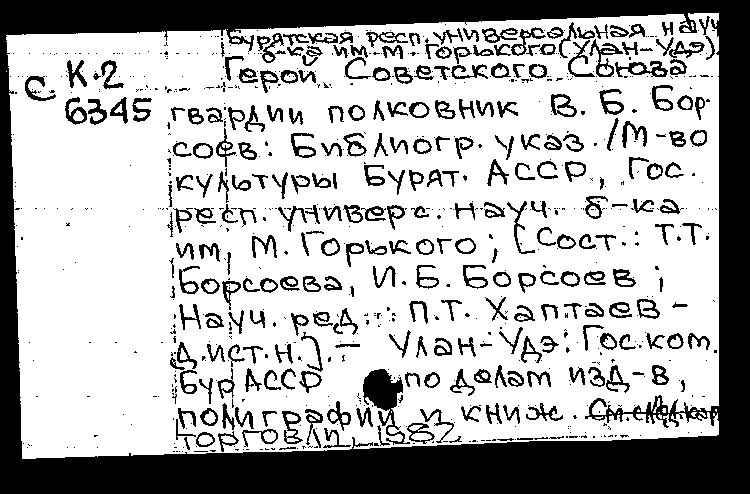 Бурятская респ. универсальная науч
б-ка им. М. Горького (Улан-Удэ).
Герой Советского Союза
С. К.2
6345
гвардии полковник В. Б. Бор-
соев: Библиогр. указ. /М-во
культуры Бурят. АССР, Гос.
респ. универс. науч. б-ка
им. М. Горького; [Сост.: Т.Т.
Борсоева, И.Б. Борсоев;
Науч. ред.: П.Т. Хаптаев -
д.ист.н.]. - Улан-Удэ: Гос.ком.
Бур АССР по делам изд-в,
полиграфии и книж. См. след. кар
торговли, 1982